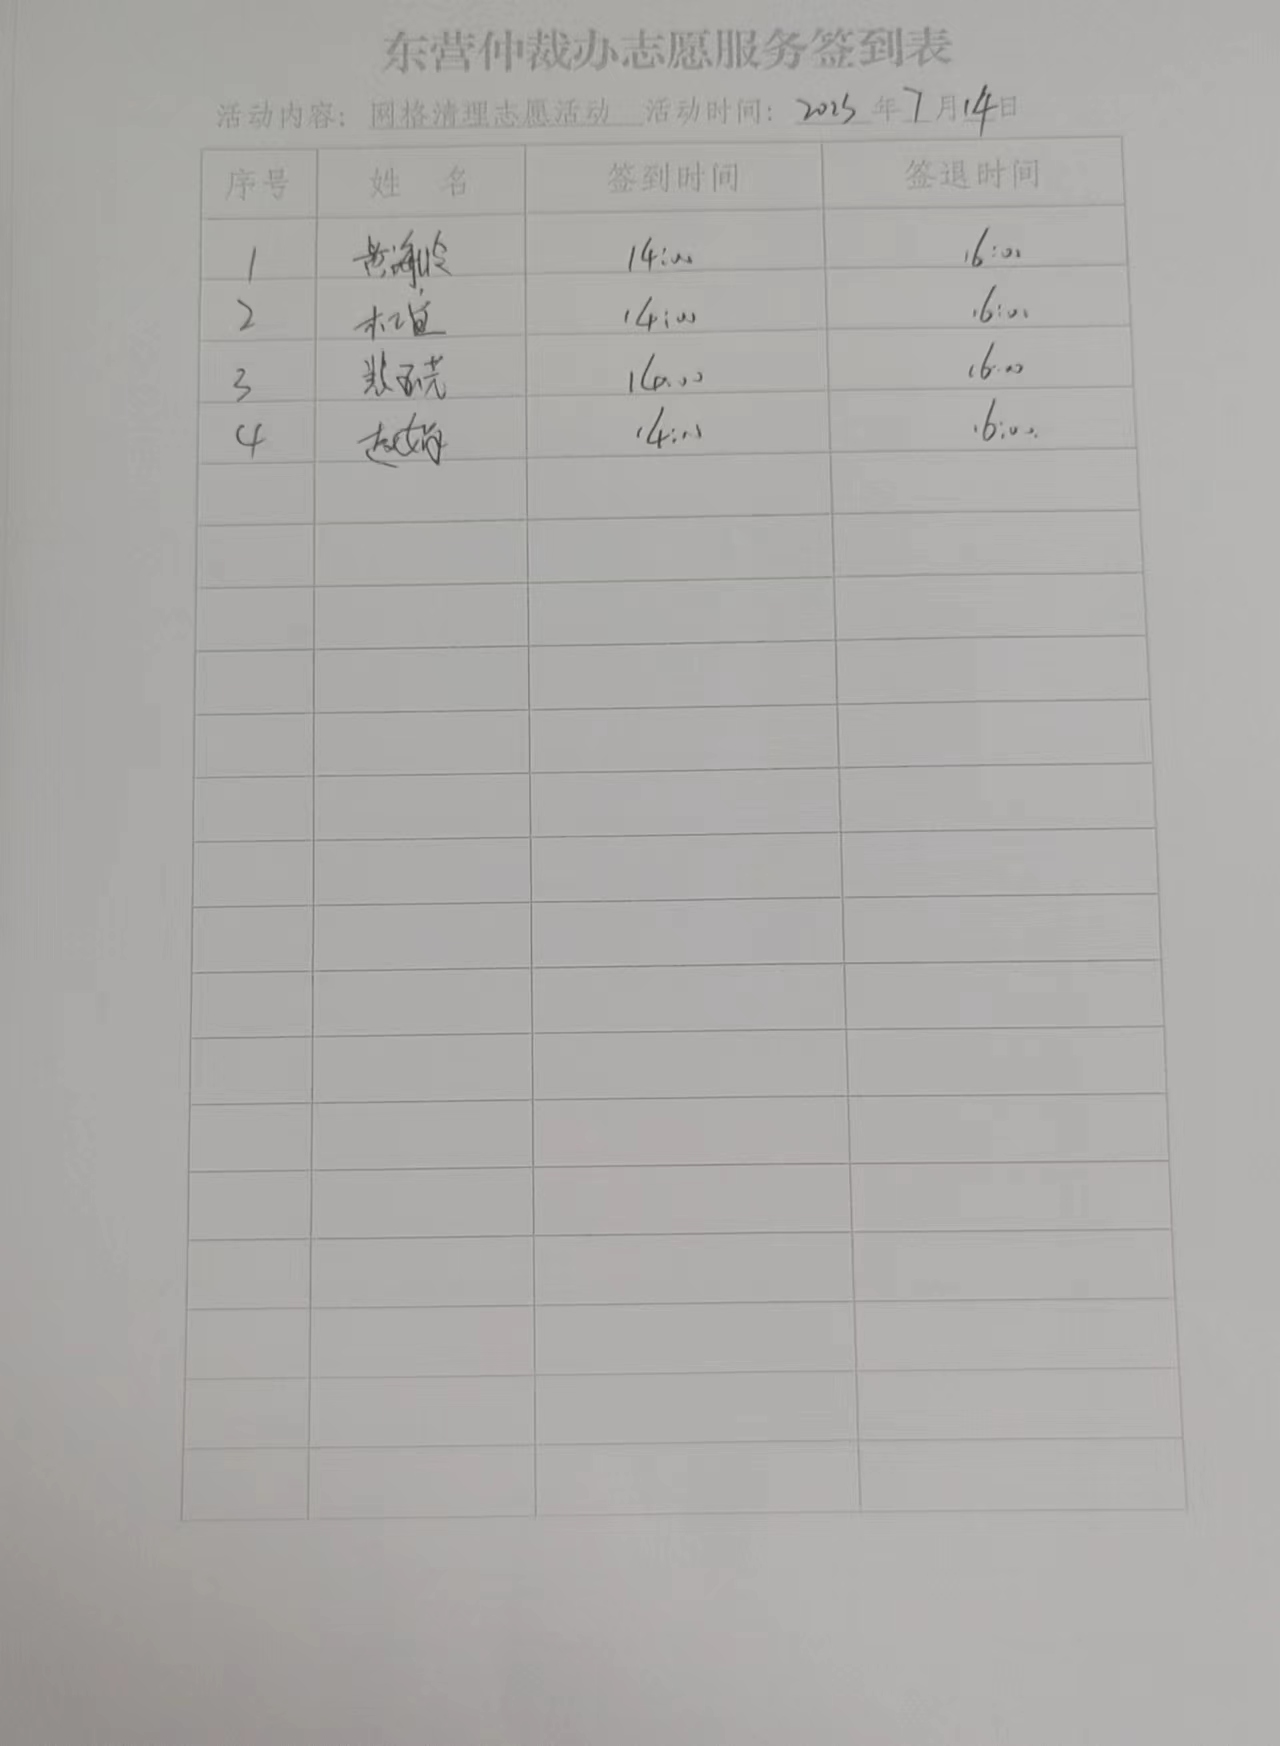 东营仲裁办志愿服务签到表
活动内容：网格清理志愿活动 活动时间：2025年7月14日
序号 姓 名 签到时间 签退时间
1 黄海波 14:00 16:00
2 14:00 16:00
3 14:00 16:00
4 14:00 16:00